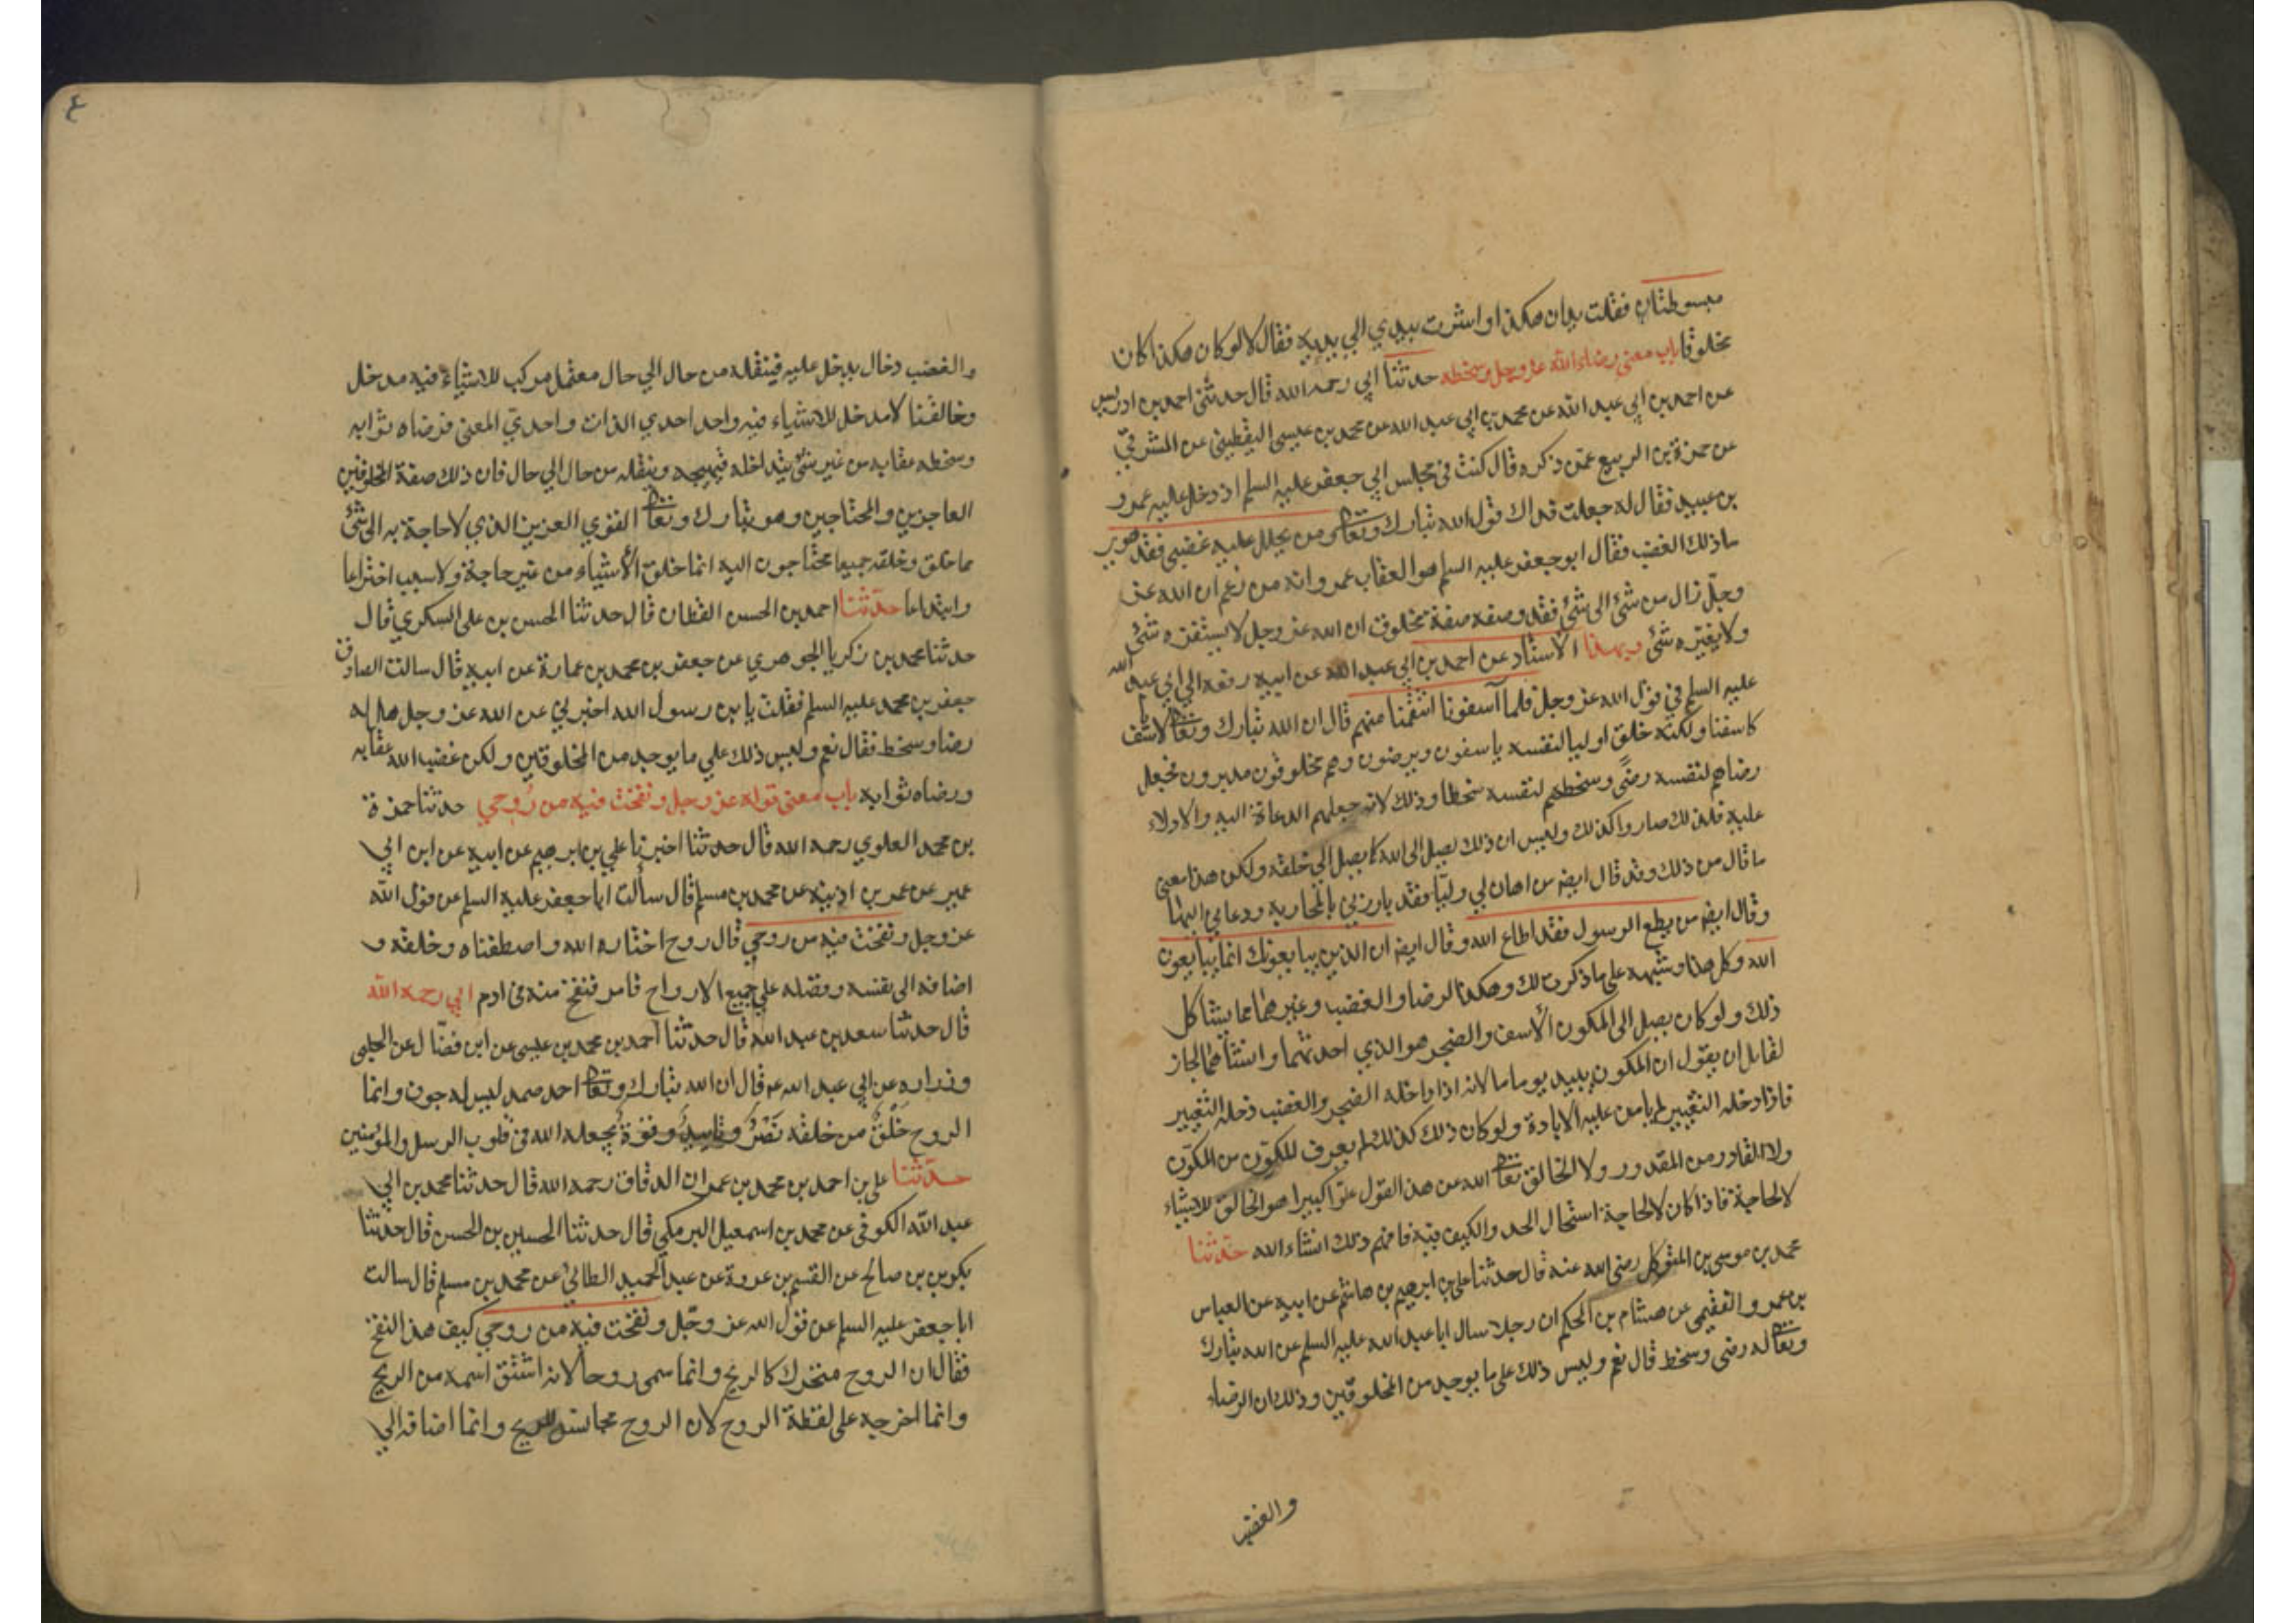 مبسوطتان فقلت يدان هكذا واشرت بيدي الي يديه فقال لا لو كان هكذا كان
مخلوقا باب معني رضاء الله عز وجل وسخطه حدثنا ابي رحمه الله قال حدثني احمد بن ادريس
عن احمد بن ابي عبد الله عن محمد بن عيسي اليقطيني عن المشرقي
عن حمزة بن الربيع عمن ذكره قال كنت في مجلس ابي جعفر عليه السلم اذ دخل عليه عمرو
بن عبيد فقال له جعلت فداك قول الله تبارك وتعالى ومن يحلل عليه غضبي فقد هوي
ما ذلك الغضب فقال ابو جعفر عليه السلم هو العقاب يا عمرو انه من زعم ان الله عز
وجل زال من شئ الى شئ فقد وصفه صفة مخلوق ان الله عز وجل لا يستفزه شئ
ولا يغيره شئ وبهذا الاسناد عن احمد بن ابي عبد الله عن ابيه رفعه الي ابي عبد الله
عليه السلم في قول الله عز وجل فلما آسفونا انتقمنا منهم قال ان الله تبارك وتعالى لا يأسف
كاسفنا ولكنه خلق اوليا لنفسه ياسفون ويرضون وهم مخلوقون مدبرون فجعل
رضاهم لنفسه رضًى وسخطهم لنفسه سخطا وذلك لانه جعلهم الدعاة اليه والادلاء
عليه فلذلك صاروا كذلك وليس ان ذلك يصل الى الله كما يصل الي خلقه ولكن هذا معني
ما قال من ذلك وقد قال ايضا من اهان لي وليّا فقد بارزني بالمحاربة ودعاني اليها
وقال ايضا من يطع الرسول فقد اطاع الله وقال ايضا ان الذين يبايعونك انما يبايعون
الله وكل هذا وشبهه على ما ذكرت لك وهكذا الرضا والغضب وغيرهما مما يشاكل
ذلك ولو كان يصل الى المكون الأسف والضجر هو الذي احدثهما وانشأهما لجاز
لقايل ان يقول ان المكون يبيد يوما ما لانه اذا داخله الضجر والغضب دخله التغيير
فاذا دخله التغيير لم يامن عليه الابادة ولو كان ذلك كذلك لم يعرف المكون من المكوّن
ولا القادر من المقدور ولا الخالق تعالى الله عن هذا القول علوّا كبيرا هو الخالق للاشياء
لا لحاجة فاذا كان لا لحاجة استحال الحد والكيف فيه فافهم ذلك انشاء الله حدثنا
محمد بن موسى بن المتوكل رضي الله عنه قال حدثنا علي بن ابرهيم بن هاشم عن ابيه عن العباس
بن عمرو الفقيمي عن هشام بن الحكم ان رجلا سال ابا عبد الله عليه السلم عن الله تبارك
وتعالى له رضى وسخط قال نعم وليس ذلك على ما يوجد من المخلوقين وذلك ان الرضاء
والغضب
٤
والغضب دخال يدخل عليه فينقله من حال الي حال معتمل مركب للاشياء فيه مدخل
وخالقنا لا مدخل للاشياء فيه واحد احدي الذات واحديّ المعنى فرضاه ثوابه
وسخطه عقابه من غير شئ يتداخله فيهيجه وينقله من حال الي حال فان ذلك صفة المخلوقين
العاجزين والمحتاجين وهو تبارك وتعالى القوي العزيز الذي لا حاجة به الى شئ
مما خلق وخلقه جميعا محتاجون اليه انما خلق الأشياء من غير حاجة ولا سبب اختراعا
وابتداعا حدثنا احمد بن الحسن القطان قال حدثنا الحسن بن على السكري قال
حدثنا محمد بن زكريا الجوهري عن جعفر بن محمد بن عمارة عن ابيه قال سالت الصادق
جعفر بن محمد عليه السلم فقلت يا بن رسول الله اخبرني عن الله عز وجل هل له
رضا وسخط فقال نعم وليس ذلك علي ما يوجد من المخلوقين ولكن غضب الله عقابه
ورضاه ثوابه باب معنى قوله عز وجل ونفخت فيه من رُوحي حدثنا حمزة
بن محمد العلوي رحمه الله قال حدثنا اخبرنا علي بن ابرهيم عن ابيه عن ابن ابي
عمير عن عمر بن اذينه عن محمد بن مسلم قال سألت ابا جعفر عليه السلم عن قول الله
عز وجل ونفخت فيه من روحي قال روح اختاره الله واصطفاه وخلقه و
اضافه الى نفسه وفضله علي جميع الارواح فامر فنفخ منه في ادم ابي رحمه الله
قال حدثنا سعد بن عبد الله قال حدثنا أحمد بن محمد بن عيسى عن ابن فضّال عن الحلبي
وزراره عن ابي عبد الله ع قال ان الله تبارك وتعالى احد صمد ليس له جوف وانما
الروح خَلْقٌ من خلقه نَصْرٌ وتاييدٌ وقوةٌ يجعله الله في قلوب الرسل والمؤمنين
حدثنا على بن احمد بن محمد بن عمران الدقاق رحمه الله قال حدثنا محمد بن ابي
عبد الله الكوفي عن محمد بن اسمعيل البرمكي قال حدثنا الحسين بن الحسن قال حدثنا
بكر بن صالح عن القسم بن عروة عن عبد الحميد الطائي عن محمد بن مسلم قال سالت
ابا جعفر عليه السلم عن قول الله عز وجّل ونفخت فيه من روحي كيف هذا النفخ
فقال ان الروح متحرك كالريح وانما سمى روحا لانه اشتق اسمه من الريح
وانما اخرجه على لفظة الروح لان الروح مجانس للريح وانما اضافه الي